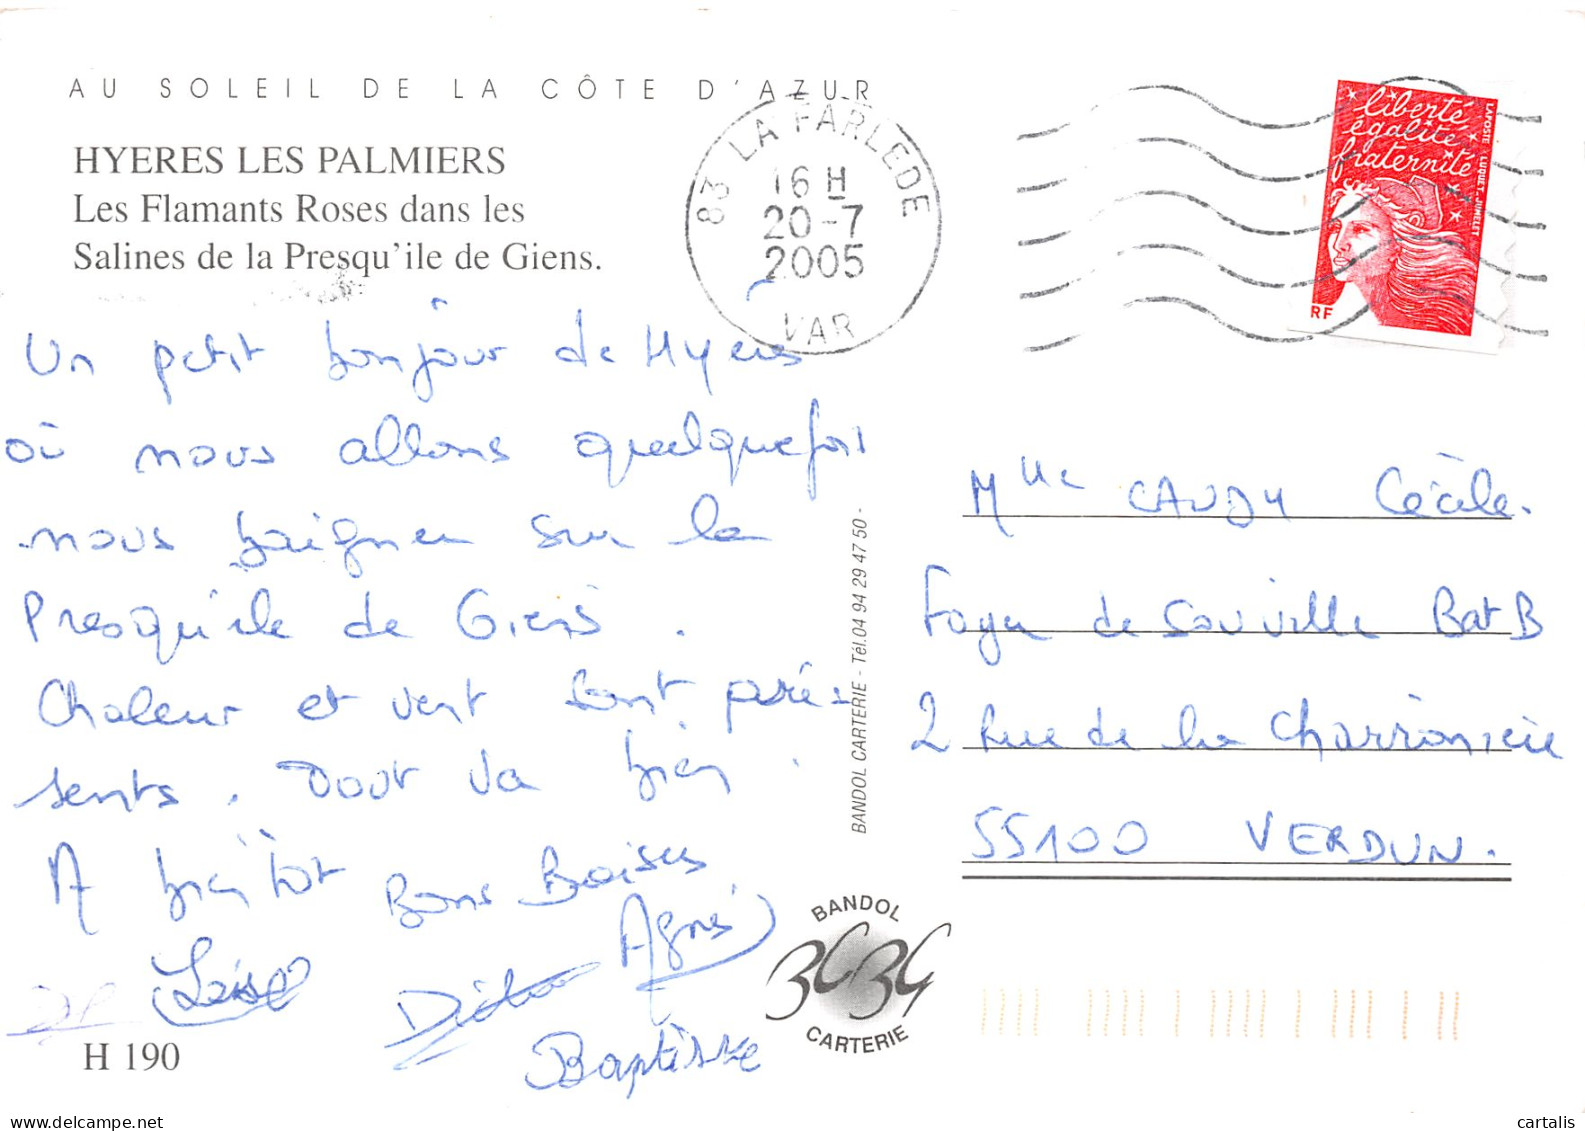 AU SOLEIL DE LA CÔTE D'AZUR
HYERES LES PALMIERS
Les Flamants Roses dans les
Salines de la Presqu'ile de Giens.
83 LA FARLEDE
16 H
20-7
2005
VAR
liberté
égalité
fraternité
LAPOSTE
LUQUET JUMELET
RF
Un petit bonjour de Hyeres
où nous allons quelquefois
nous baigner sur la
Presqu'ile de Giens.
Chaleur et vent sont pré-
sents. Tout va bien.
A bientôt Bons Baisers
Agnès
Loïse
Didier
Baptiste
H 190
BANDOL CARTERIE - Tél.04 94 29 47 50 -
BANDOL
CARTERIE
Mlle CAUDY Cécile.
Foyer de Souville Bat B
2 Rue de la Charronnière
55100 VERDUN.
delcampe.net
cartalis